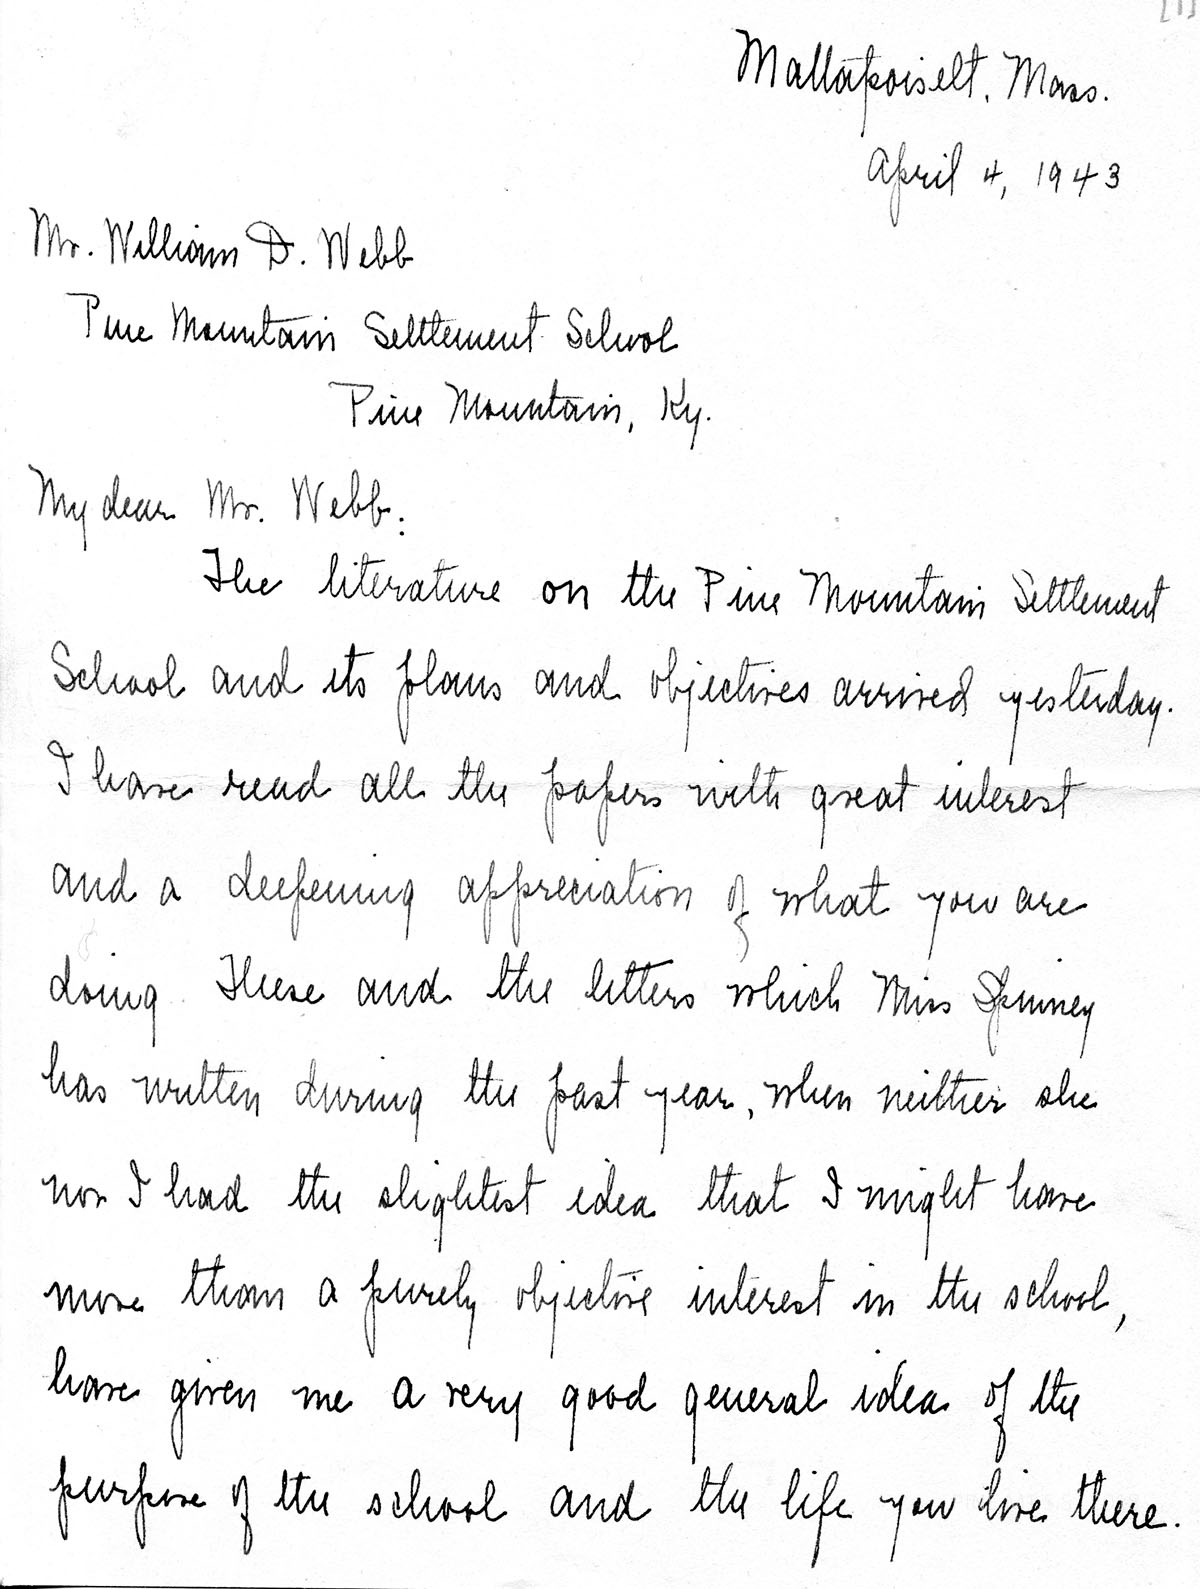 [1]
Mattapoisett, Mass.
April 4, 1943
Mr. William D. Webb
Pine Mountain Settlement School
Pine Mountain, Ky.
My dear Mr. Webb:
The literature on the Pine Mountain Settlement
School and its plans and objectives arrived yesterday.
I have read all the papers with great interest
and a deepening appreciation of what you are
doing. These and the letters which Miss Spinney
has written during the past year, when neither she
nor I had the slightest idea that I might have
more than a purely objective interest in the school,
have given me a very good general idea of the
purpose of the school and the life you live there.